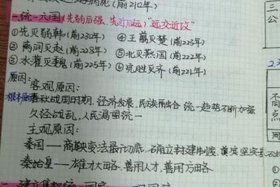 (前212年)
一、统一六国(先弱后强、先近后远)"远交近攻"
①先灭弱韩(前230年) ④王翦灭楚(前223年)
②离间灭赵(前228年) ⑤北灭燕国(前222年)
③水灌灭魏(前225年) ⑥吮胜灭齐(前221年)
原因:
客观原因:
春秋战国时期,经济发展,民族融合 统一趋势不断加强
久经战乱,人民渴望统一
主观原因:
秦国——商鞅变法最彻底,确立封建
秦始皇——雄才大略,善用人才,善用方略。
三公
不同点
用